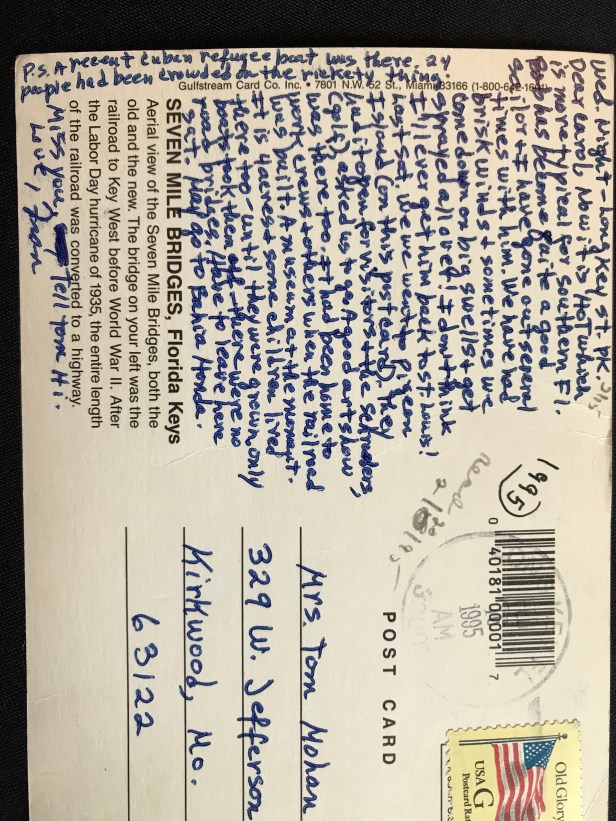 Wed. night - Long Key St. Pk. 2/15
Dear Carol, Now it is HOT which
is more typical for southern Fl.
Bob has become quite a good
sailor + I have gone out several
times with him. We have had
brisk winds + sometimes we
come down on big swells + get
sprayed all over! I don't think
I'll ever get him back to St. Louis!
Last Sat. we went to Pigeon
Island (on this postcard), they
had it open for visitors + the
asked us to go. A good art show
was there too. It had been home to
work crews + others when the railroad
was built. A museum at the moment.
It is 4 acres + some children lived
there too - until they were grown only
boats took them off - there were no
road bridges. Have to leave here
Sat. May go to Bahia Honda.
SEVEN MILE BRIDGES, Florida Keys
Aerial view of the Seven Mile Bridges, both the
old and the new. The bridge on your left was the
railroad to Key West before World War II. After
the Labor Day hurricane of 1935, the entire length
of the railroad was converted to a highway.
Miss you, Tell Tom Hi.
Love, Fran
P.S. A recent Cuban refugee boat was there. 24
people had been crowded on the rickety thing.
Gulfstream Card Co. Inc. • 7801 N.W. 52 St., Miami 33166 (1-800-6
1995
0 40181 00001 7
1995
AM
POST CARD
Old Glory
USA G
Postcard Ra
Mrs. Tom Mohan
329 W. Jefferson
Kirkwood, Mo.
63122